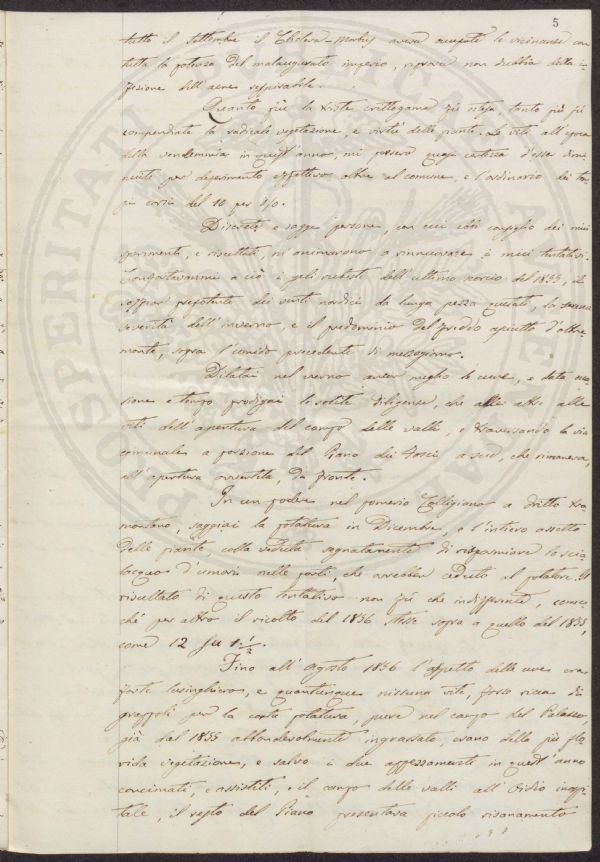 5
tutto il settembre il Cholera-Morbus aveva occupate le vicinanze con
tutta la potenza del malaugurato imperio, riprova non dubbia della in-
fezione dell'aere respirabile.
Quanto più la triste crittogama fu estesa, tanto più fu
compendiata la radicale vegetazione, e virtù delle piante. Le viti all'epoca
della vendemmia in quest'anno, mi persero quasi certezza d'esser dimi-
nuite per deperimento effettivo oltre al comune, e l'ordinario dei tem-
pi corsi del 10 per %.
Discrete e sagge persone, con cui ebbi consiglio dei miei
sperimenti, e risultati, m'animarono a rinnuovare i miei tentativi.
Confortavanmi a ciò i geli richiesti dell'ultimo scorcio del 1855, il
soffiar prepotente dei venti nordici da lunga pezza quetati, la
severità dell'inverno, e il predominio del freddo aquilo d'oltre-
monte, sopra l'umido precedente di mezzogiorno.
Dilatai nel verno anter meglio le cure, e data oc-
sione e tempo prodigai le solite diligenze, che alle altre alle
viti dell'apertura del campo delle valli, e traversando la via
comunale a porzione del Piano dei Posci a sud, che rimaneva,
all'apertura avvertita, di fronte.
In un podere nel pomerio Colligiano a dritto tra-
montano, saggiai la potatura in Dicembre, e l'intiero assetto
delle piante, colla veduta segnatamente di risparmiare lo scia-
lacquo d'umori nelle parti, che avrebber ceduto al potatore. Il
risultato di questo tentativo non fu che indifferente, come-
ché per altro il ricolto del 1856 stesse sopra a quello del 1855,
come 12 su 1 1/2.
Fino all'Agosto 1856 l'aspetto delle uve era
forte lusinghiero, e quantunque nissuna vite, fosse ricca di
grappoli per la corta potatura, pure nel campo del Palazzo,
già dal 1855 abbondevolmente ingrassato, erano della più flo-
rida vegetazione, e salvo i due appezzamenti in quest'anno
concimati, e assistiti, e il campo delle valli all'Oidio inospi-
tale, il resto del Piano presentava piccolo risanamento